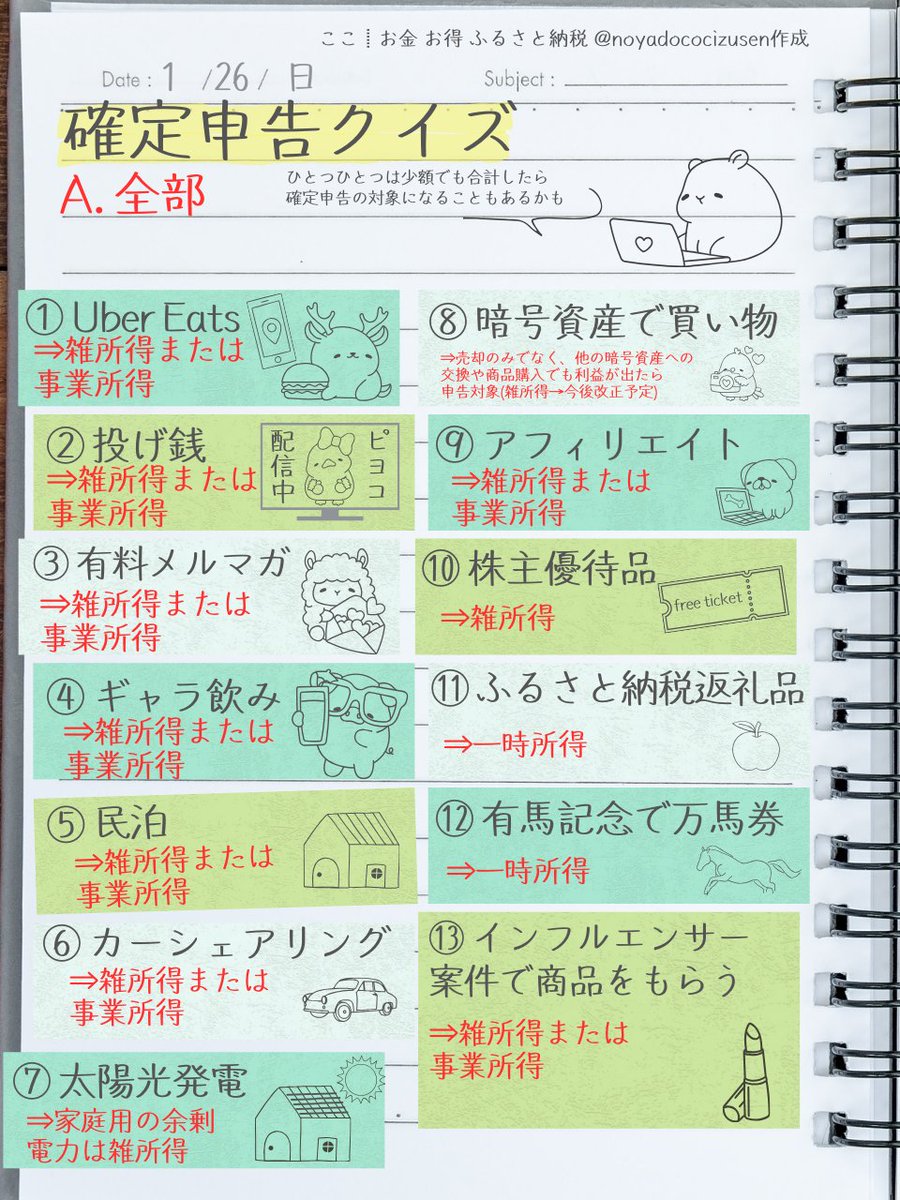 ここ┊お金 お得 ふるさと納税 @noyadococizusen作成
Date : 1 /26 / 日 Subject :
確定申告クイズ
A. 全部
ひとつひとつは少額でも合計したら
確定申告の対象になることもあるかも
① Uber Eats
⇒雑所得または
事業所得
② 投げ銭
⇒雑所得または
事業所得
配信中
ピヨコ
③ 有料メルマガ
⇒雑所得または
事業所得
④ ギャラ飲み
⇒雑所得または
事業所得
⑤ 民泊
⇒雑所得または
事業所得
⑥ カーシェアリング
⇒雑所得または
事業所得
⑦ 太陽光発電
⇒家庭用の余剰
電力は雑所得
⑧ 暗号資産で買い物
⇒売却のみでなく、他の暗号資産への
交換や商品購入でも利益が出たら
申告対象(雑所得→今後改正予定)
⑨ アフィリエイト
⇒雑所得または
事業所得
⑩ 株主優待品
⇒雑所得
free ticket
⑪ ふるさと納税返礼品
⇒一時所得
⑫ 有馬記念で万馬券
⇒一時所得
⑬ インフルエンサー
案件で商品をもらう
⇒雑所得または
事業所得